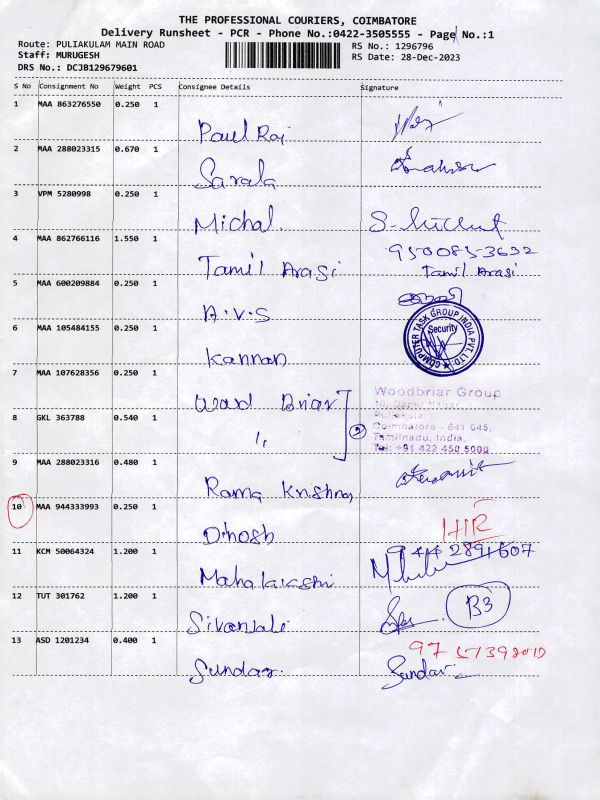 THE PROFESSIONAL COURIERS, COIMBATORE
Delivery Runsheet - PCR - Phone No.:0422-3505555 - Page No.:1
Route: PULIAKULAM MAIN ROAD RS No.: 1296796
Staff: MURUGESH RS Date: 28-Dec-2023
DRS No.: DCJB129679601
S No Consignment No Weight PCS Consignee Details Signature
1 MAA 863276550 0.250 1
Paul Raj
2 MAA 288023315 0.670 1
Sarala
3 VPM 5280998 0.250 1
Michal. S.
4 MAA 862766116 1.550 1 9500853632
Tamil Arasi Tamil Arasi
5 MAA 600209884 0.250 1
A.V.S
COMPUTER TASK GROUP INDIA PVT. LTD.
Security
6 MAA 105484155 0.250 1
Kannan
7 MAA 107628356 0.250 1
Woodbriar Group
Ward Briar
8 GKL 363788 0.540 1 2
Puliakulam,
Coimbatore - 641 045,
Tamilnadu, India.
Tel: +91 422 450 5000
9 MAA 288023316 0.480 1
Rama Krishna
10 MAA 944333993 0.250 1
Dhosh
11 KCM 50064324 1.200 1 944 2891607
Mahalakshmi
12 TUT 301762 1.200 1 B3
Sivanjali
13 ASD 1201234 0.400 1
Sundar. Sundar